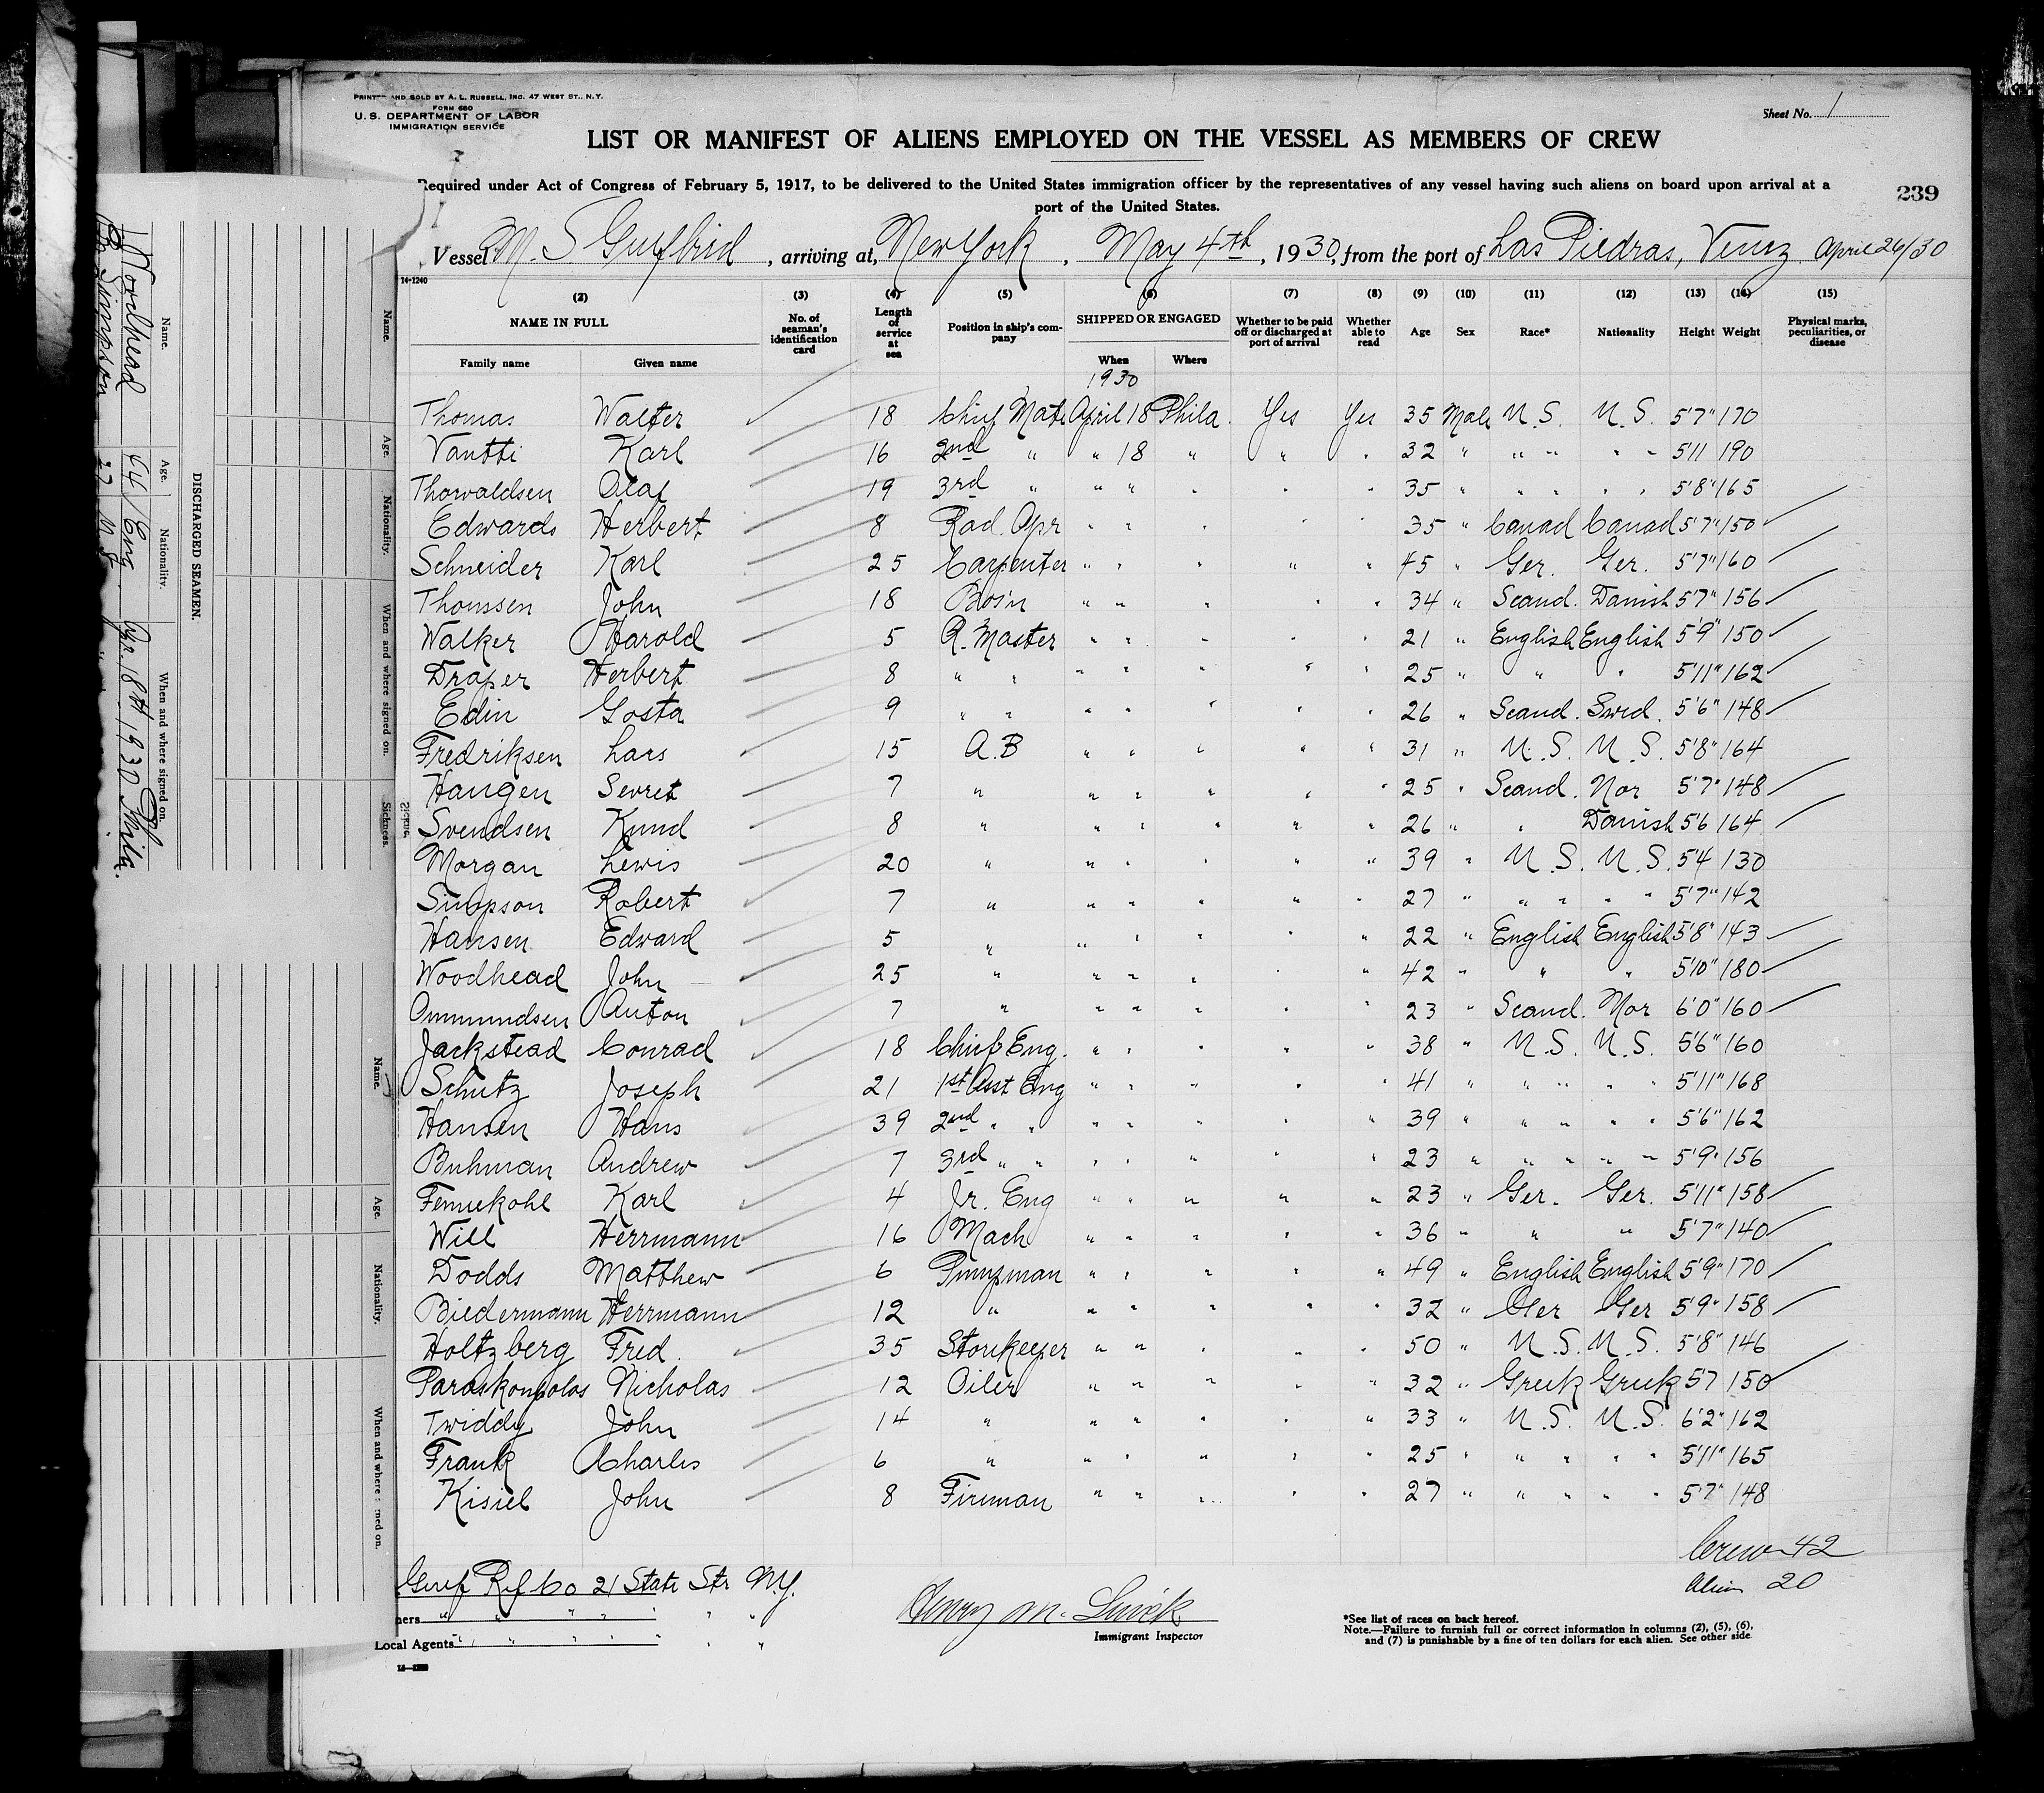 PRINTED AND SOLD BY A. L. RUSSELL, INC. 47 WEST ST., N.Y.
FORM 680
U. S. DEPARTMENT OF LABOR
IMMIGRATION SERVICE
Sheet No. 1
LIST OR MANIFEST OF ALIENS EMPLOYED ON THE VESSEL AS MEMBERS OF CREW
Required under Act of Congress of February 5, 1917, to be delivered to the United States immigration officer by the representatives of any vessel having such aliens on board upon arrival at a
port of the United States.
239
Vessel M. S Gulfbird, arriving at, New York, May 4th, 1930, from the port of Las Piedras, Venez. April 26/30
14-1240
(2) (3) (4) (5) (6) (7) (8) (9) (10) (11) (12) (13) (14) (15)
NAME IN FULL No. of seaman's identification card Length of service at sea Position in ship's company SHIPPED OR ENGAGED Whether to be paid off or discharged at port of arrival Whether able to read Age Sex Race* Nationality Height Weight Physical marks, peculiarities, or disease
Family name Given name When Where
1930
Thomas Walter 18 Chief Mate April 18 Phila. Yes Yes 35 Male U. S. U. S. 5'7" 170
Vantti Karl 16 2nd " " 18 " " " 32 " " " " " 5'11 190
Thorvaldsen Olaf 19 3rd " " " " " " 35 " " " " " 5'8" 165
Edwards Herbert 8 Rad. Opr " " " " " 35 " Canad Canad 5'7" 150
Schneider Karl 25 Carpenter " " " " " 45 " Ger. Ger. 5'7" 160
Thomssen John 18 Bosin " " " " " 34 " Scand. Danish 5'7" 156
Walker Harold 5 Q. Master " " " " " 21 " English English 5'9" 150
Draper Herbert 8 " " " " " " " 25 " " " 5'11" 162
Edin Gosta 9 " " " " " " " 26 " Scand. Swed. 5'6" 148
Fredriksen Lars 15 A.B " " " " " 31 " U. S. U. S. 5'8" 164
Haugen Sevret 7 " " " " " " 25 " Scand. Nor 5'7" 148
Svendsen Knud 8 " " " " " " 26 " " Danish 5'6 164
Morgan Lewis 20 " " " " " " 39 " U. S. U. S. 5'4 130
Simpson Robert 7 " " " " " " 27 " " " " " 5'7" 142
Hansen Edward 5 " " " " " " 22 " English English 5'8" 143
Woodhead John 25 " " " " " " 42 " " " 5'10" 180
Ommundsen Anton 7 " " " " " " 23 " Scand. Nor 6'0" 160
Jackstead Conrad 18 Chief Eng. " " " " " 38 " U. S. U. S. 5'6" 160
Schutz Joseph 21 1st Asst Eng " " " " " 41 " " " " " 5'11" 168
Hansen Hans 39 2nd " " " " " " " 39 " " " " " 5'6" 162
Buhman Andrew 7 3rd " " " " " " " 23 " " " " " 5'9" 156
Fennekohl Karl 4 Jr. Eng " " " " " 23 " Ger. Ger. 5'11" 158
Will Herrmann 16 Mach " " " " " 36 " " " 5'7" 140
Dodds Matthew 6 Pumpman " " " " " 49 " English English 5'9" 170
Biedermann Herrmann 12 " " " " " " 32 " Ger Ger 5'9" 158
Holtzberg Fred. 35 Storekeeper " " " " " 50 " U. S. U. S. 5'8" 146
Paraskonpolos Nicholas 12 Oiler " " " " " 32 " Greek Greek 57 150
Twiddy John 14 " " " " " " 33 " U. S. U. S. 6'2" 162
Frank Charles 6 " " " " " " 25 " " " " " 5'11" 165
Kisiel John 8 Fireman " " " " " 27 " " " " " 5'7" 148
Crew 42
Alien 20
Gulf Ref Co 21 State Str N.Y.
ners " " " " " " "
Local Agents " " " " " " "
Henry M.
Immigrant Inspector
*See list of races on back hereof.
Note.—Failure to furnish full or correct information in columns (2), (5), (6),
and (7) is punishable by a fine of ten dollars for each alien. See other side
DISCHARGED SEAMEN.
Name. Age. Nationality. When and where signed on.
J Woodhead 44 Eng. Apr. 18th 1930 Phila.
R. Simpson 27 U. S. "
Name. Age. Nationality. When and where signed on. Sickness.
Name. Age. Nationality. When and where signed on.